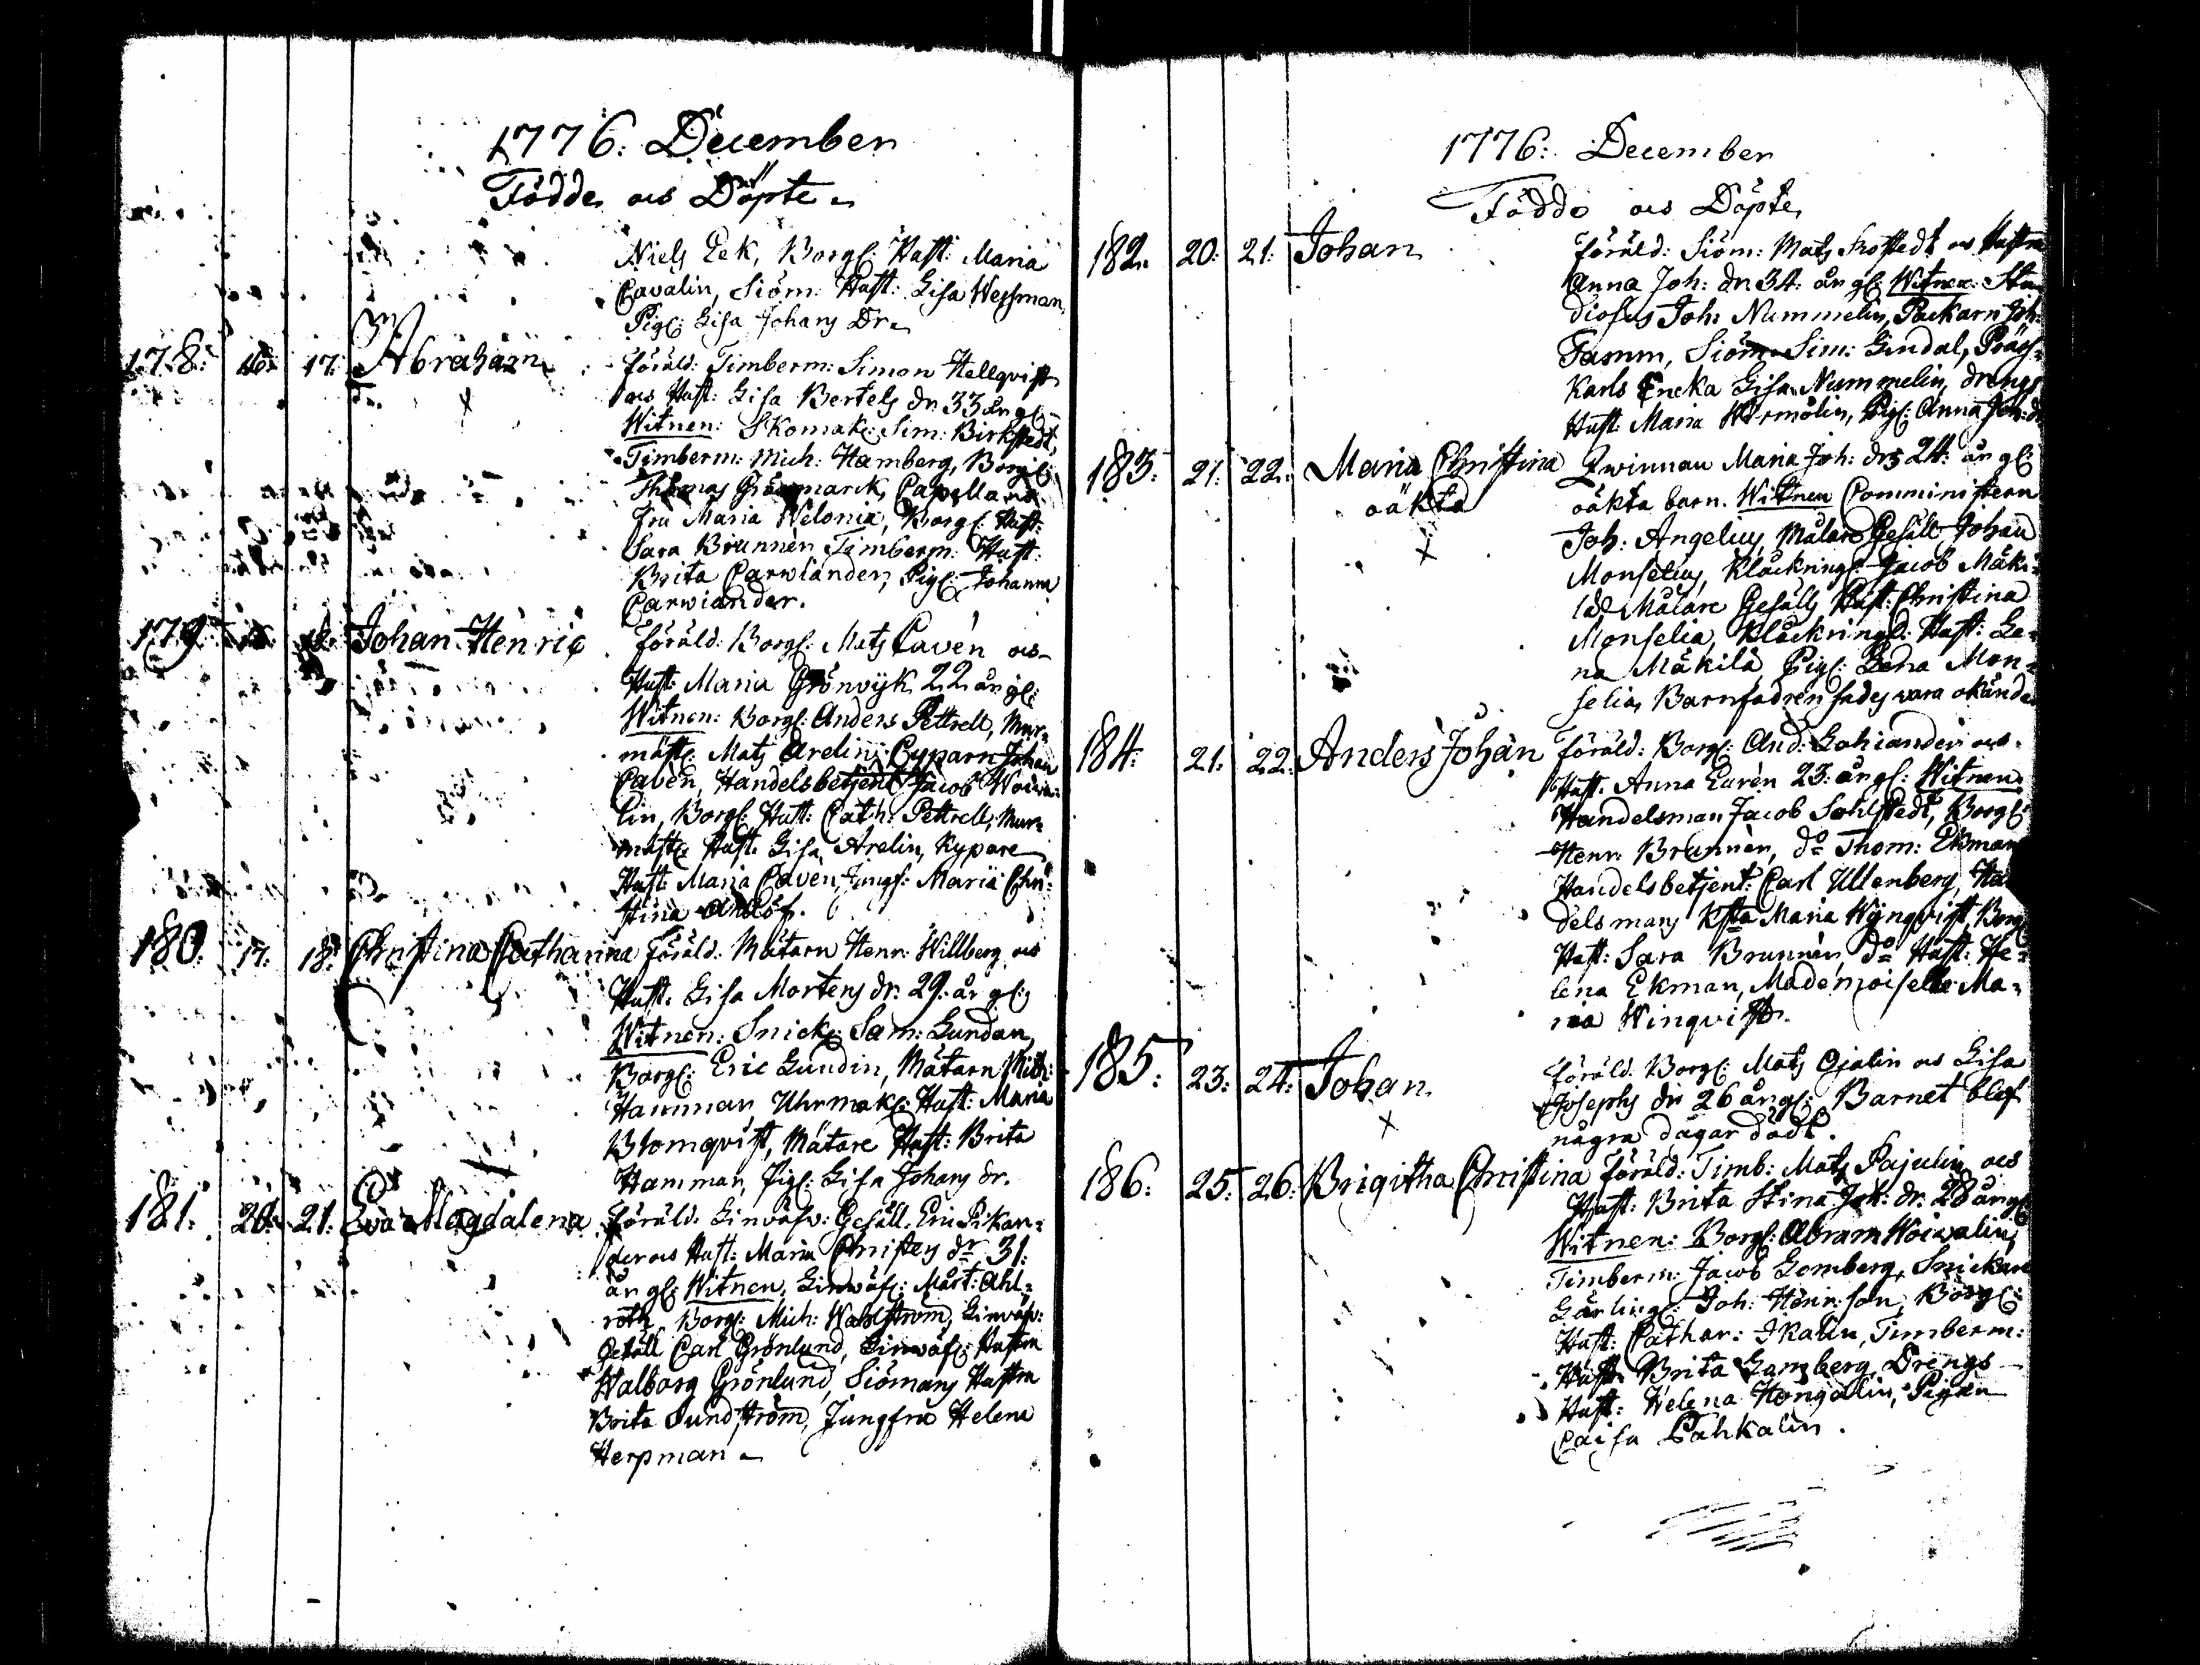 1776: December
Födde och Döpte
Niels Eek, Borgl: Hust: Maria
Cavalin, Siöm: Hust: Lisa Wessman,
Pigl: Lisa Johans Dr
178: 16: 17: Abraham föräld: Timberm: Simon Hellqvist
och Hust: Lisa Bertels dr 33 år gl:
Witnen: Skomak: Sim: Birkstedt,
Timberm: Mich: Hamberg, Borgl:
Thomas Grönmarck, Capellans
fru Maria Welonia, Borgl: Hust:
Sara Brunnèn Timberm: Hust:
Brita Carwiander, Pigl: Johanna
Carwiander.
179: Johan Henric föräld: Borgl: Mats Cavèn och
Hust: Maria Grönvijk 22 år gl:
Witnen: Borgl: Anders Pettrell, Mur-
mäst: Mats Arelin, Cyparn Johan
Cavèn, Handelsbetjent Jacob Woiva-
lin, Borgl: Hust: Cath: Pettrell, Mur-
mäst: Hust: Lisa Arelin, Kypare
Hust: Maria Caven, Jungf: Maria Chri-
stina
180. 17. 18: Christina Catharina föräld: Mätarn Henr: Willberg och
Hust: Lisa Mortens dr: 29: år gl:
Witnen: Snick: Sam: Lundan,
Borgl: Eric Lundin, Mätarn Mich:
Hamman, Uhrmak: Hust: Maria
Blomqvist, Mätare Hust: Brita
Hamman, Pigl: Lisa Johans dr.
181. 20: 21: Eva Magdalena föräld: Linväfv: Gesäll: Eric Pikan-
der och Hust: Maria Christers dr 31:
år gl: Witnen, Linwäf: Mårt: Ahl-
roth, Borgl: Mich: Wahlström, Linväfv:
Gesäll Carl Grönlund, Linwäf: Hustru
Walborg Grönlund, Siömans Hustru
Brita Sundström, Jungfru Helena
Herpman
1776: December
Födde och Döpte
182. 20: 21: Johan föräld: Siöm: Mats och Hustru
Anna Joh: dr 34: år gl: Witnen: Stu-
diosus Joh: Nummelin, Packarn Joh:
Tamm, Siöm: Sim: Lindal, Präss-
karls Encka Lisa Nummelin, drengs
Hust: Maria Wirmolin, Pigl: Anna Joh: dr
183: 21: 22: Maria Christina Qwinnan Maria Joh: dr 24: år gl:
oäkta oäkta barn. Witnen Comministern
Joh: Angelius, Målare Gesäll Johan
Monselius, Klåckring: Jacob Mäki-
lä Målare Gesälls Hust: Christina
Monselia, Klåckring: Hust: Le-
na Mäkilä, Pigl: Lena Mon-
selia, Barnfadren sades wara okänd
184: 21: 22: Anders Johan föräld: Borgl: And: Lohiander och
Hust: Anna Eurèn 23: år gl: Witnen
Handelsman Jacob Sohlstedt, Borgl:
Henr: Brunnèn, do Thom: Ekman
Handelsbetjent: Carl Ullenberg, Han
delsmans Maria Wijnqvist, Borgl:
Hust: Sara Brunnèn, do Hust: He-
lena Ekman, Mademoiselle Ma-
ria Winqvist.
185: 23: 24: Johan föräld: Borgl: Mats Ojalin och Lisa
Josephs dr 26 år gl: Barnet blef
några dagar dödt.
186: 25: 26: Brigitha Christina föräld: Timb: Mats Pajulin och
Hust: Brita Stina Joh: dr: 28 år gl:
Witnen: Borgl: Abram Woivalin,
Timberm: Jacob Lomberg, Snickare
Lärling: Joh: Henr:son, Borgl:
Hust: Cathar: Ikalin, Timberm:
Hust: Brita Lomberg, Drengs
Hust: Helena Hongolin, Pigan
Caisa Pahkalin.